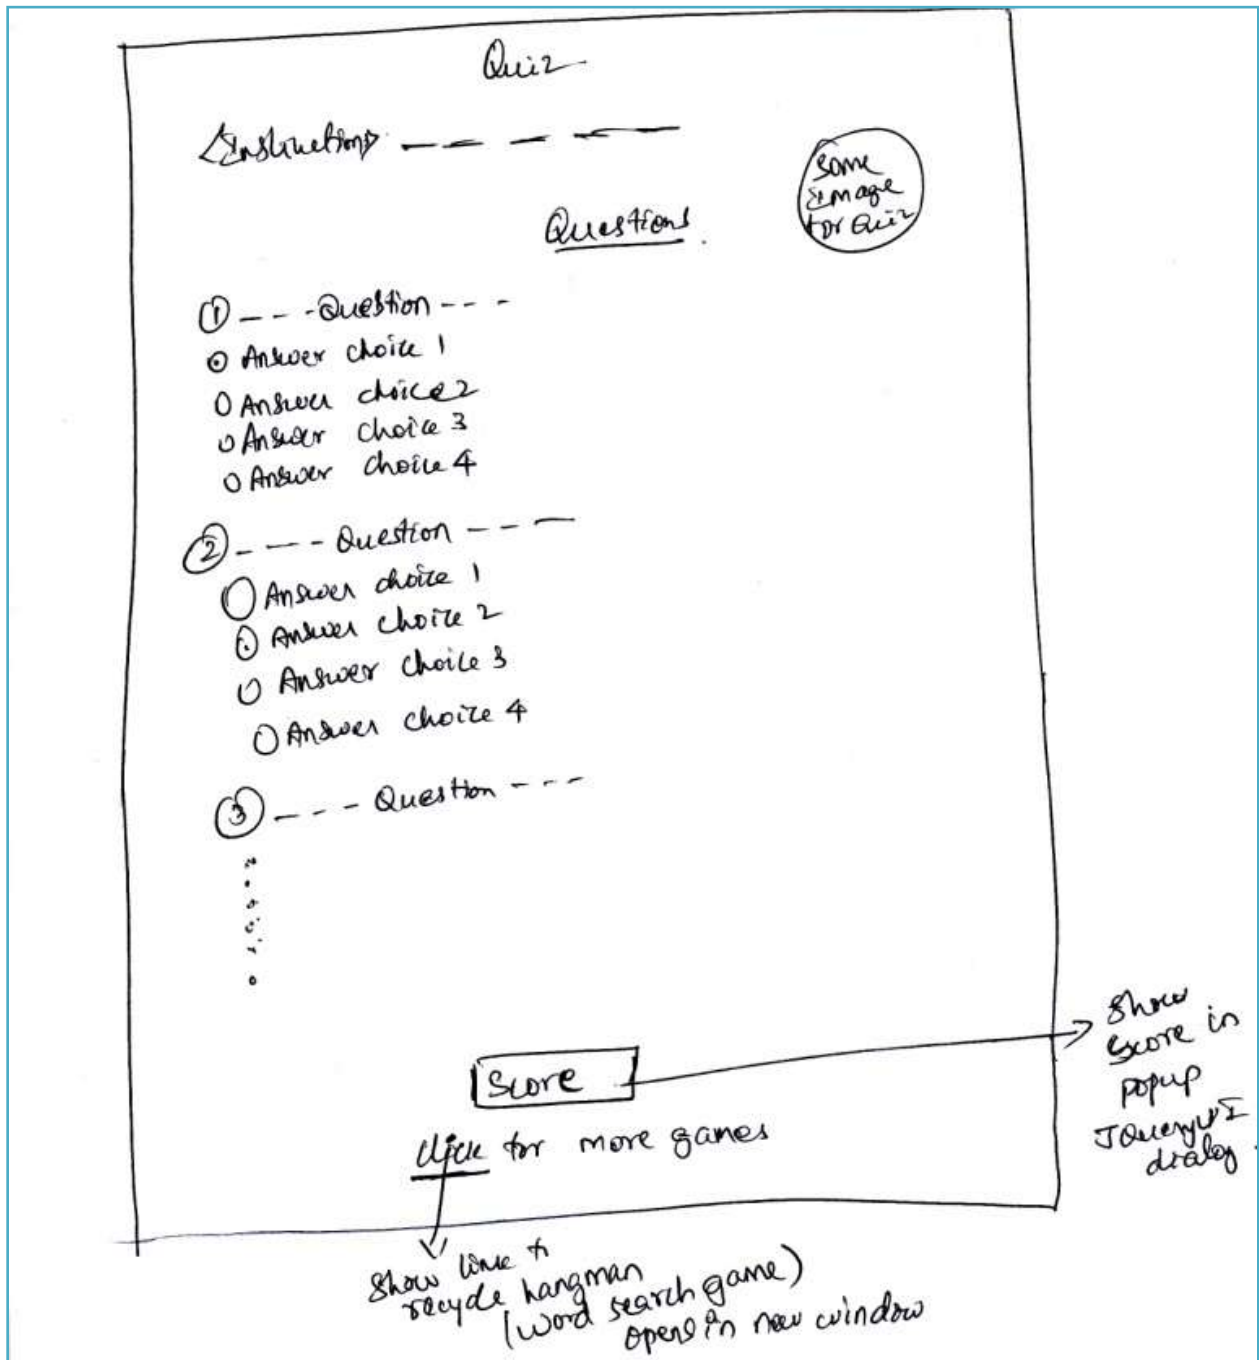 Quiz
<Instructions>
some
image
for Quiz
Questions.
① - - - Question - - -
Answer choice 1
Answer choice 2
Answer choice 3
Answer choice 4
② - - - - Question - - -
Answer choice 1
Answer choice 2
Answer choice 3
Answer choice 4
③ - - - - Question - - -
Score
Show
score in
popup
JQueryUI
dialog.
Click for more games
Show link to
recycle hangman
(word search game)
opens in new window